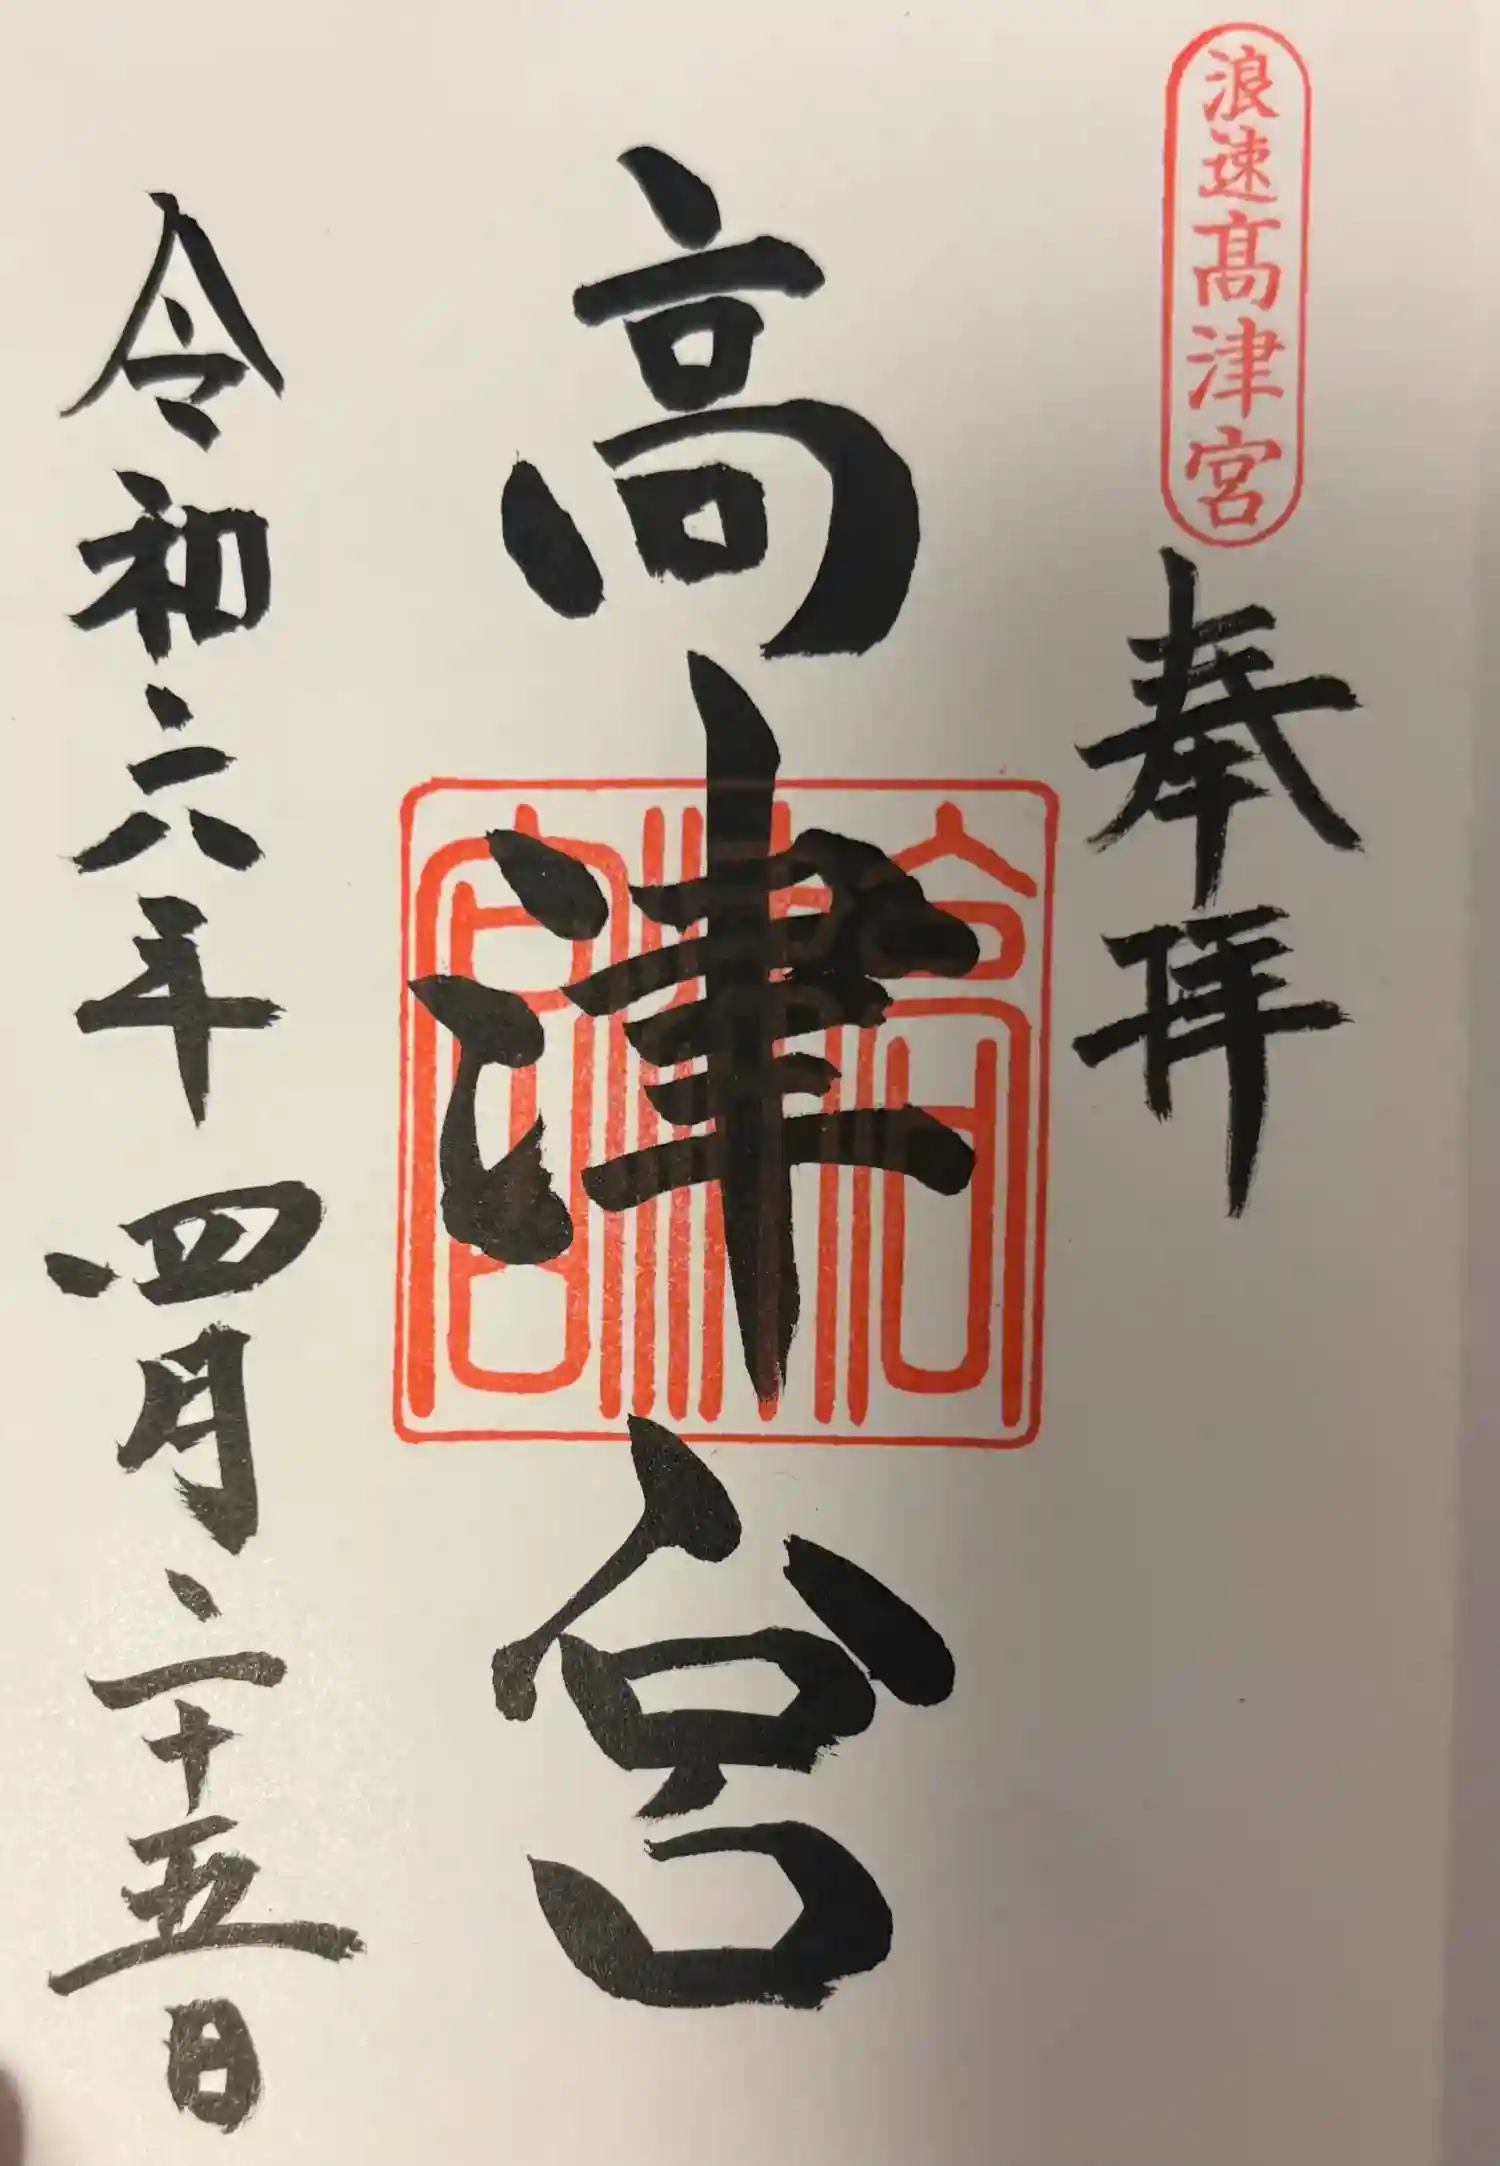 浪速髙津宮
奉拝
高津宮
高津宮
令和六年四月二十五日